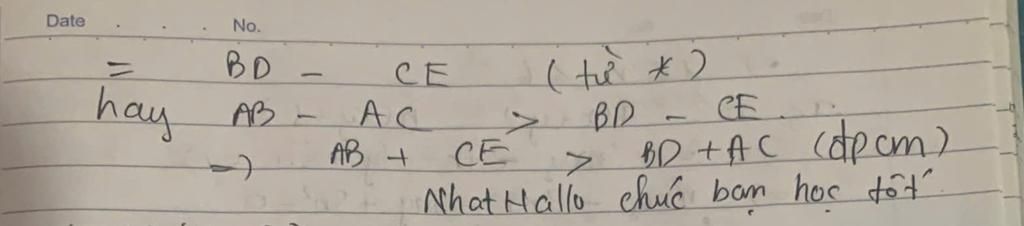 Date . . . . No.
= BD - CE (từ *)
hay AB - AC > BD - CE
=> AB + CE > BD + AC (đpcm)
NhatHallo chúc bạn học tốt